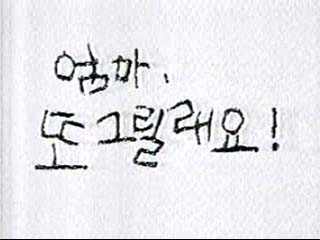 엄마,
또 그릴래요!